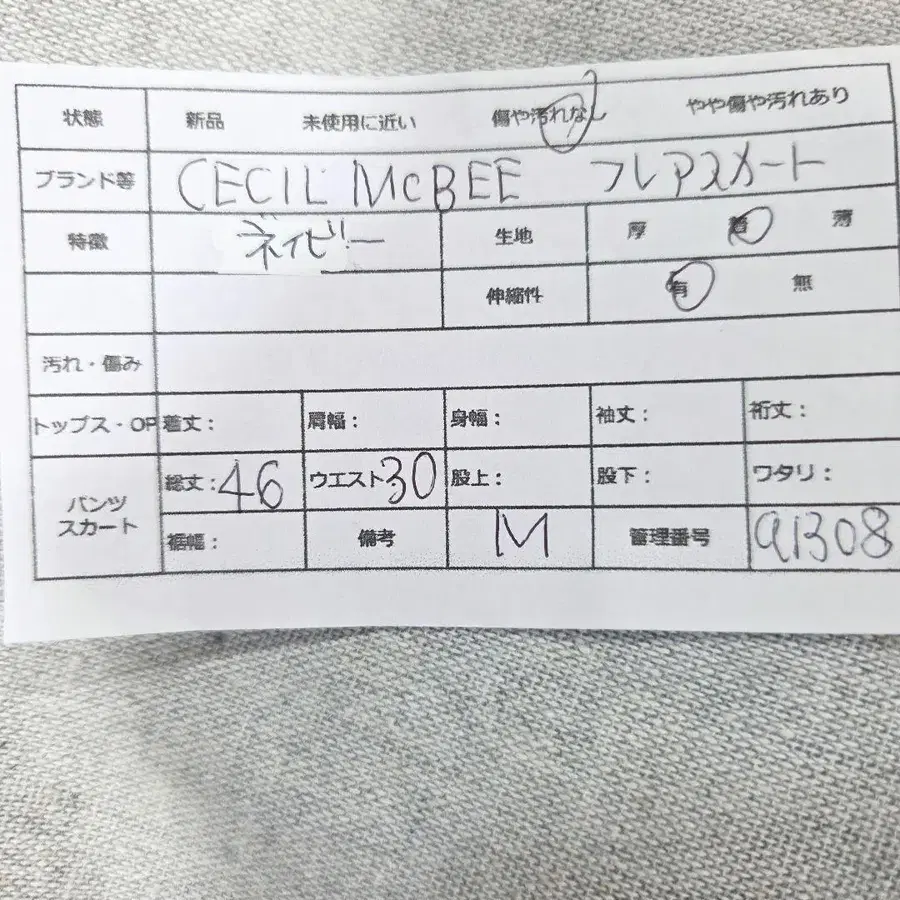 状態 新品 未使用に近い 傷や汚れなし やや傷や汚れあり
ブランド等 CECIL McBEE フレアスカート
特徴 ネイビー 生地 厚 普 薄
伸縮性 有 無
汚れ・傷み
トップス・OP 着丈: 肩幅: 身幅: 袖丈: 裄丈:
パンツ スカート 総丈:46 ウエスト30 股上: 股下: ワタリ:
裾幅: 備考 M 管理番号 91308